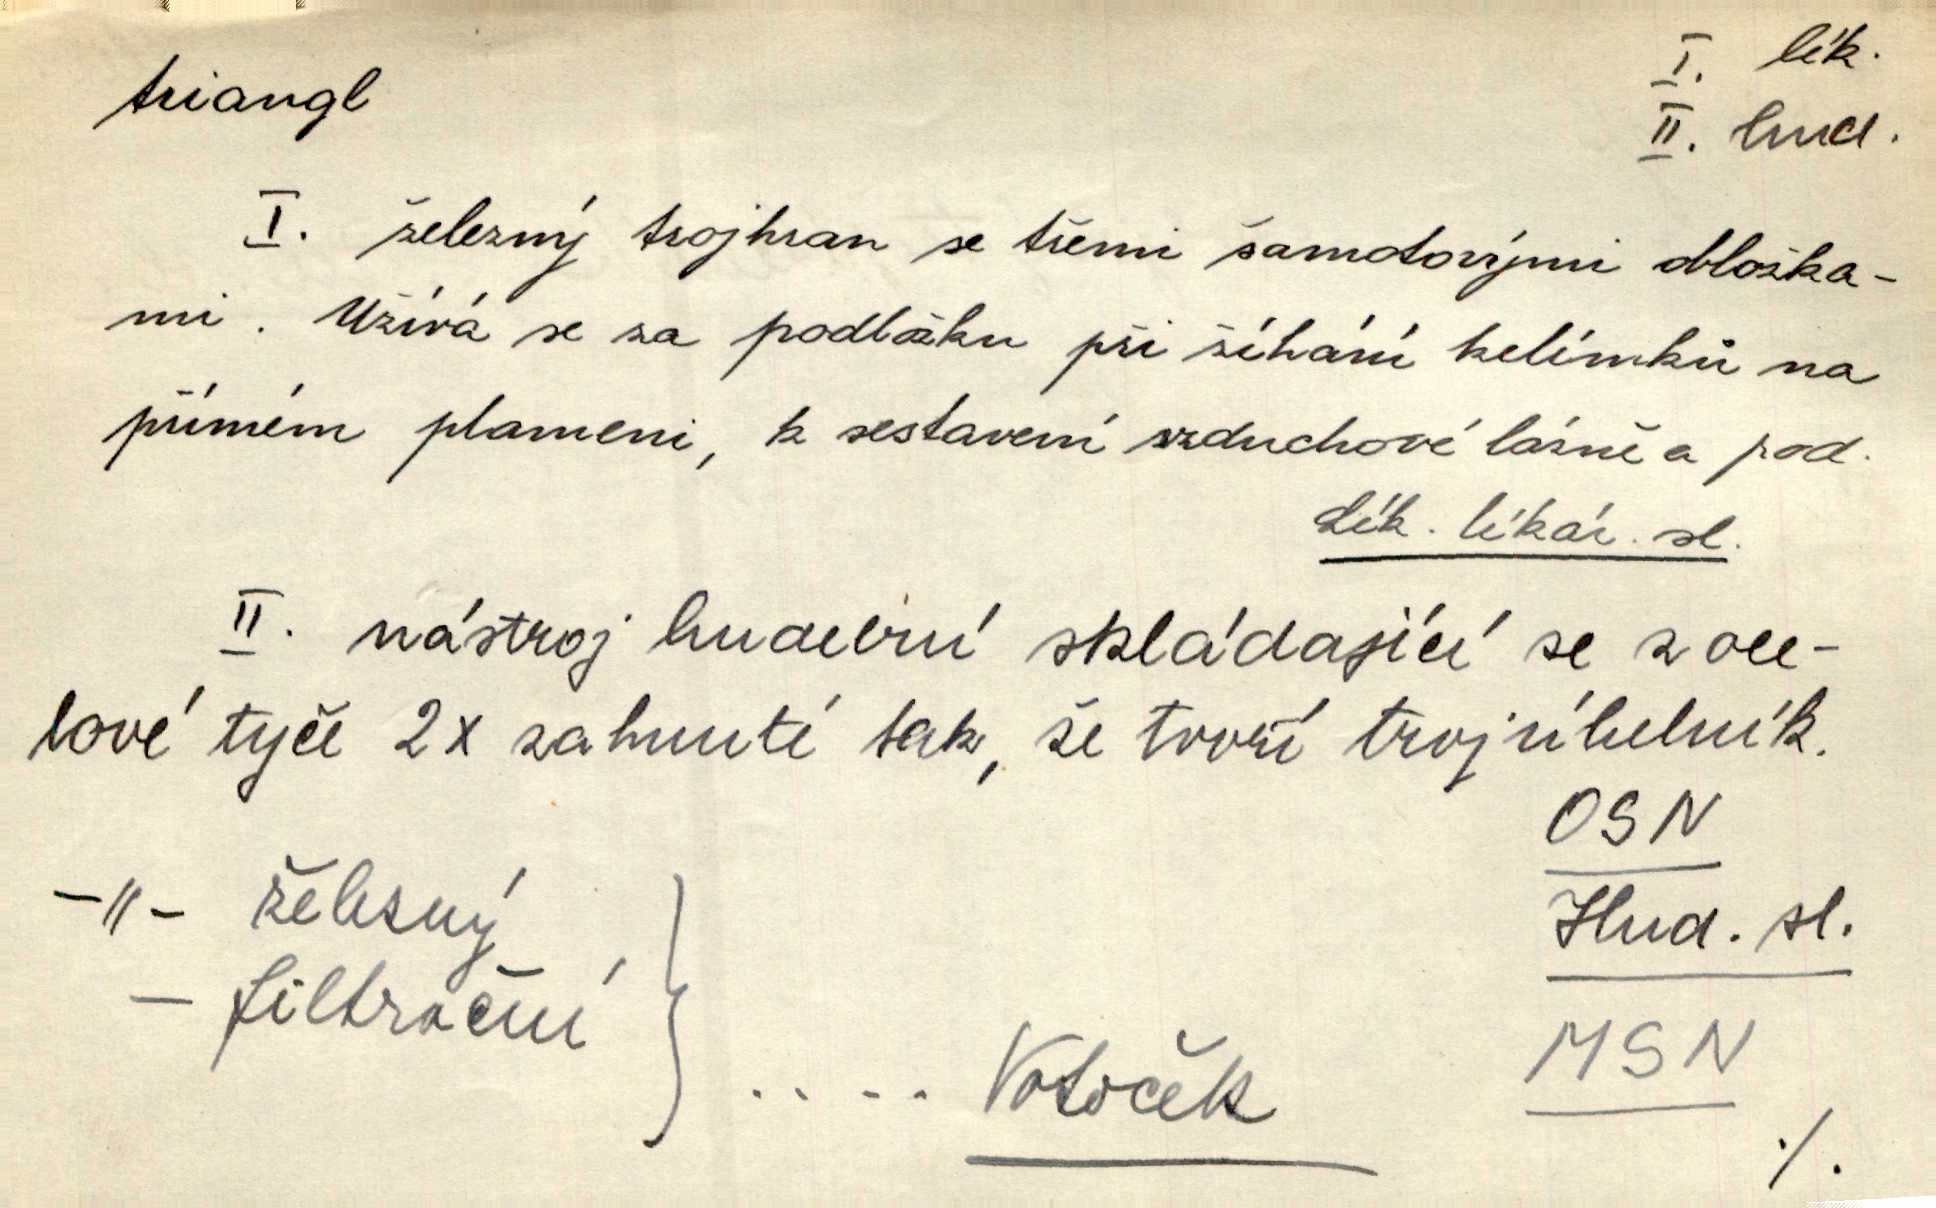 triangl
I. lék.
II. hud.
I. železný trojhran se třemi šamotovými obložka-
mi. Užívá se za podložku při žíhání kelímků na
přímém plameni, k sestavení vzduchové lázně a pod.
Lék. lékár. sl.
II. nástroj hudební skládající se z oce-
lové tyče 2x zahnuté tak, že tvoří trojúhelník.
OSN
Hud. sl.
MSN
-"- železný
- filtrační
.... Votoček
./.